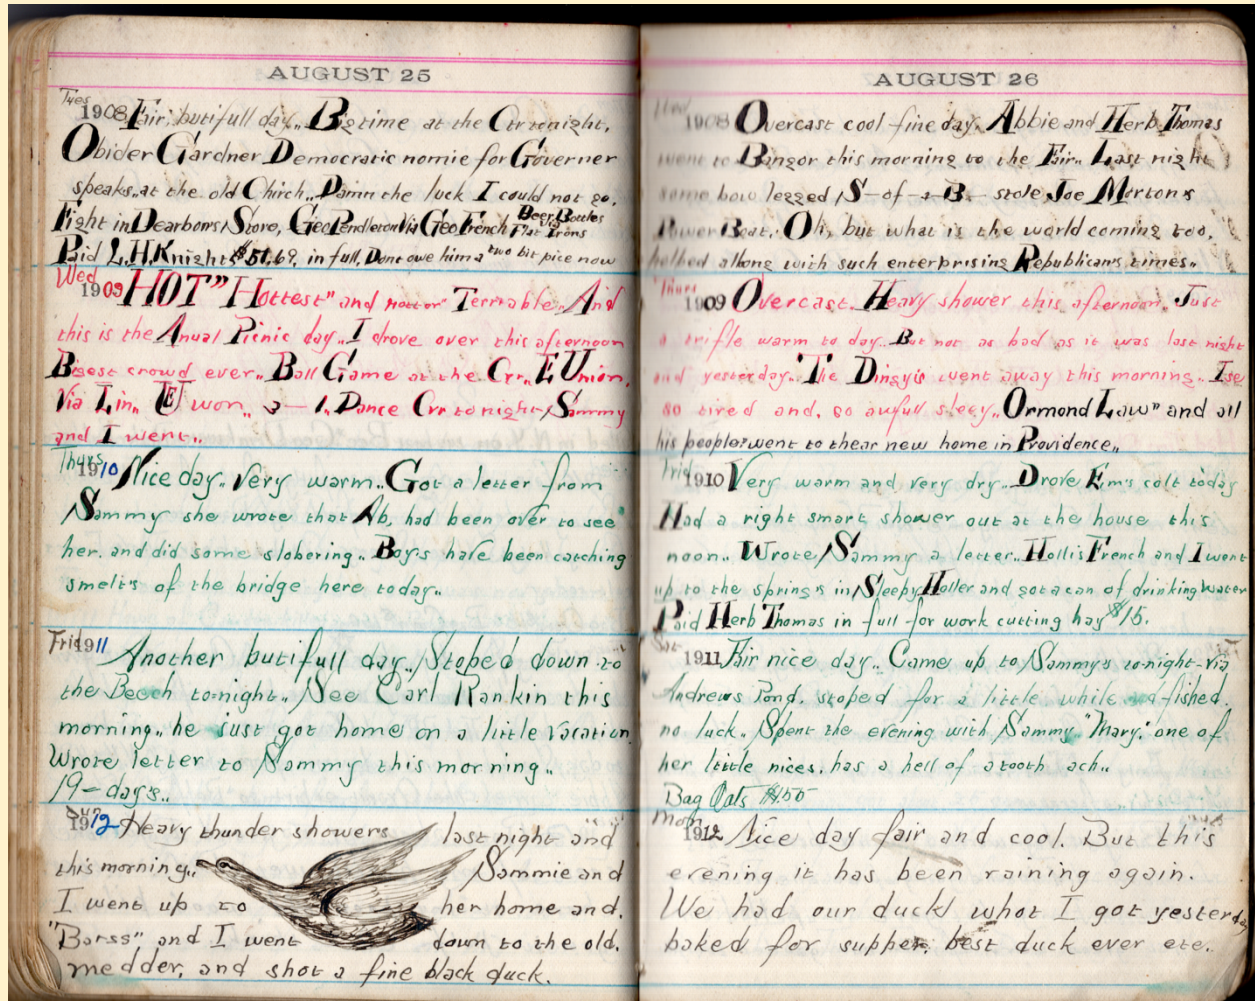 AUGUST 25
Tues
1908 Fair, butifull day,, Big time at the Ctr tonight,
Obider Gardner Democratic nomie for Governer
speaks,, at the old Chirch,, Damn the luck I could not go.
Fight in Dearborns Store, Geo Pendleton Via Geo French Beer Bottles Via Flat Irons
Paid L.H. Knight $51.69, in full, Dont owe him a two bit pice now
Wed
1909 HOT" Hottest" and hotter" Terrable,, And
this is the Anual Picnic day,, I drove over this afternoon
Bigest crowd ever,, Ball Game at the Ctr,, E Union,
Via Lin,, E U won,, 3 — 1,, Dance Ctr to night, Sammy
and I went,,
Thurs
1910 Nice day,, Very warm,, Got a letter from
Sammy she wrote that Ab, had been over to see"
her, and did some slobering,, Boys have been catching
smelts of the bridge here today,,
Frid 1911
Another butifull day,, Stoped down to
the Beech to-night,, See Carl Rankin this
morning,, he just got home on a little vacation.
Wrote letter to Sammy this morning,,
19 - day's,,
Sun
1912 Heavy thunder showers last night and
this morning,, Sammie and
I went up to her home and,
"Barss" and I went down to the old,
medder, and shot a fine black duck.
AUGUST 26
Wed
1908 Overcast cool fine day, Abbie and Herb Thomas
went to Bangor this morning to the Fair,, Last night
some bow legged S-of-a-B- stole Joe Mortons
Power Boat, Oh, but what is the world coming too,
helbed allong with such enterprising Republicans times,,
Thurs
1909 Overcast, Heavy shower this afternoon,, Just
a trifle warm to day,, But not as bad as it was last night
and yesterday,, The Dingyis went away this morning,, Ise
so tired and, so awfull sleey,, Ormond Law" and all
his people" went to thear new home in Providence,,
Frid
1910 Very warm and very dry,, Drove Em's colt today
Had a right smart shower out at the house this
noon,, Wrote Sammy a letter,, Hollis French and I went
up to the spring's in Sleepy Holler and got a can of drinking water
Paid Herb Thomas in full for work cutting hay $15.
Sat
1911 Fair nice day,, Came up to Sammy's to-night - via
Andrews Pond, stoped for a little while fished,
no luck,, Spent the evening with Sammy "Mary," one of
her little nices, has a hell of a tooth ach,,
Bag Oats $1.50
Mon
1912 Nice day fair and cool. But this
evening it has been raining again.
We had our duck whot I got yesterday
baked for supper, best duck ever ete,,